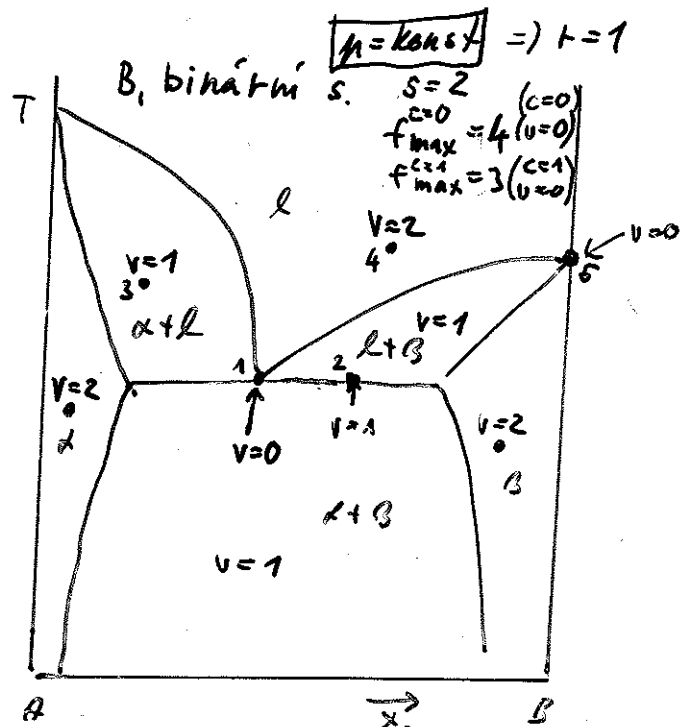 p = konst => r = 1
B, binární s. s = 2
f max c=0 = 4 (c=0) (v=0)
f max c=1 = 3 (c=1) (v=0)
T
l
v=2
4
v=0
5
v=1
3
α+l
v=1
l+β
1
2
v=2
α
v=0
v=1
v=2
β
α+β
v=1
A
x
B